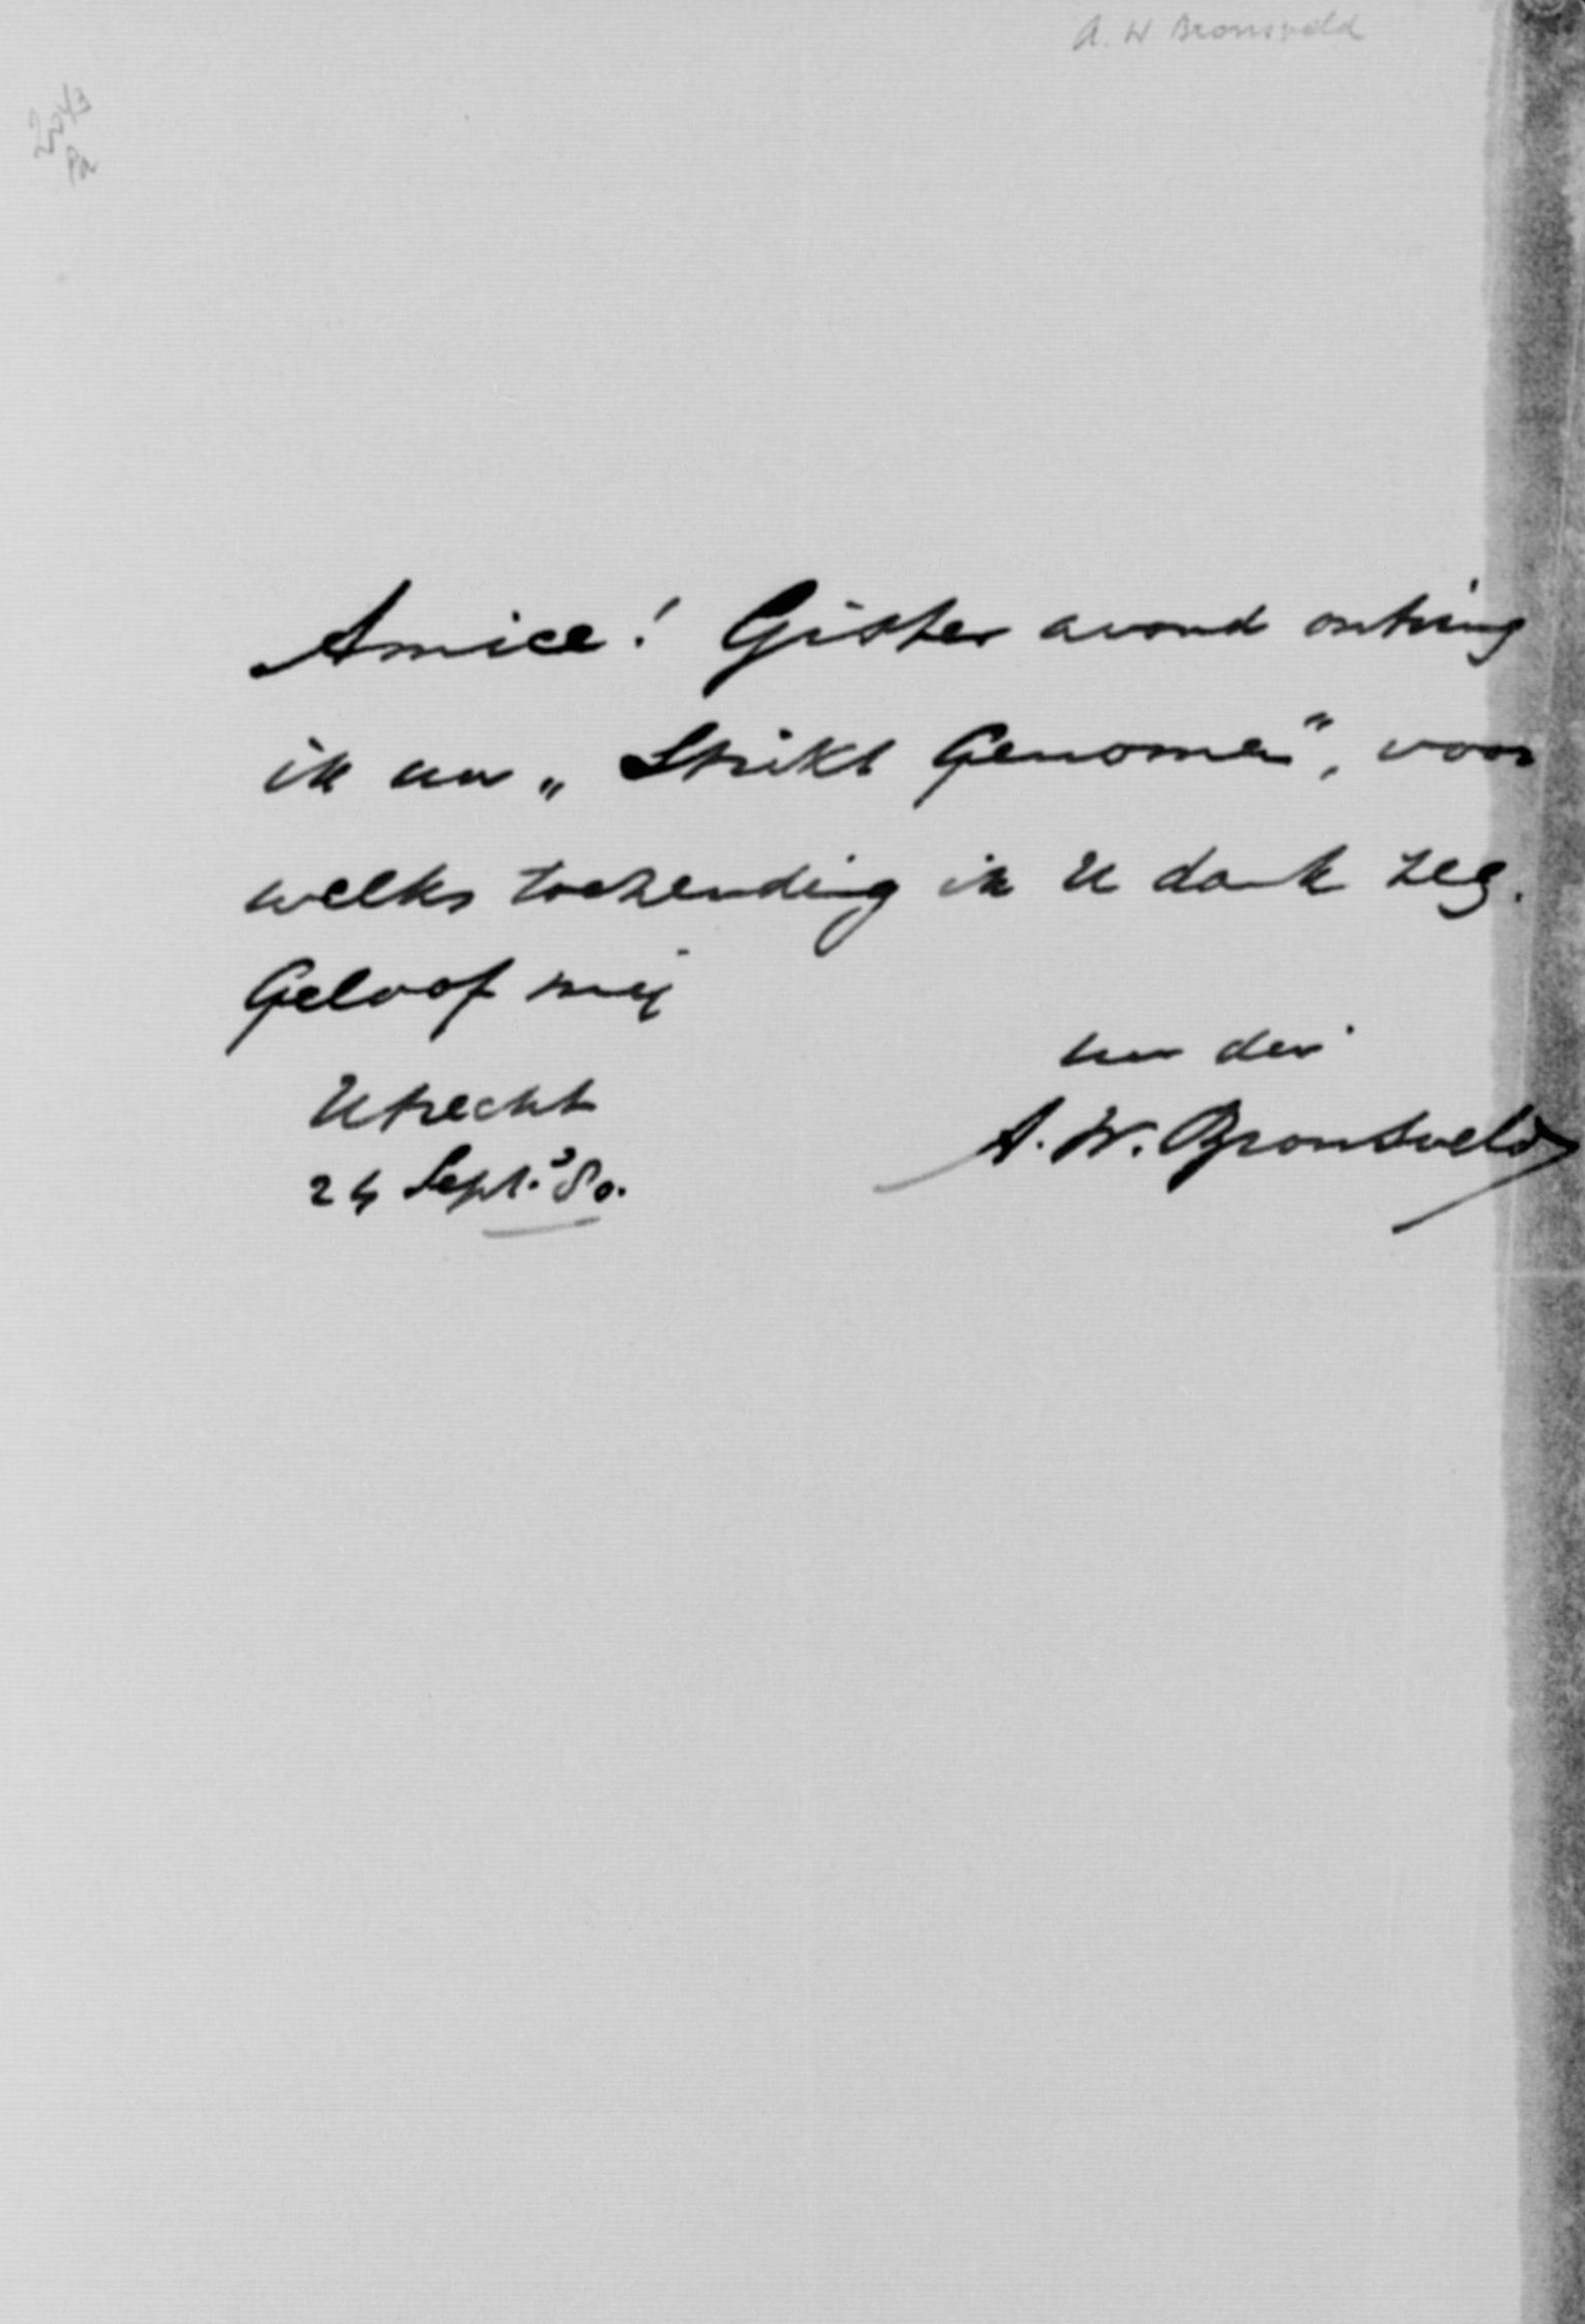 A. W Bronsveld
Amice! Gister avond ontving
ik uw „Strikt Genomen", voor
welks toezending ik U dank zeg.
Geloof mij
uw dw
Utrecht
A. W. Bronsveld
24 Sept. '80.